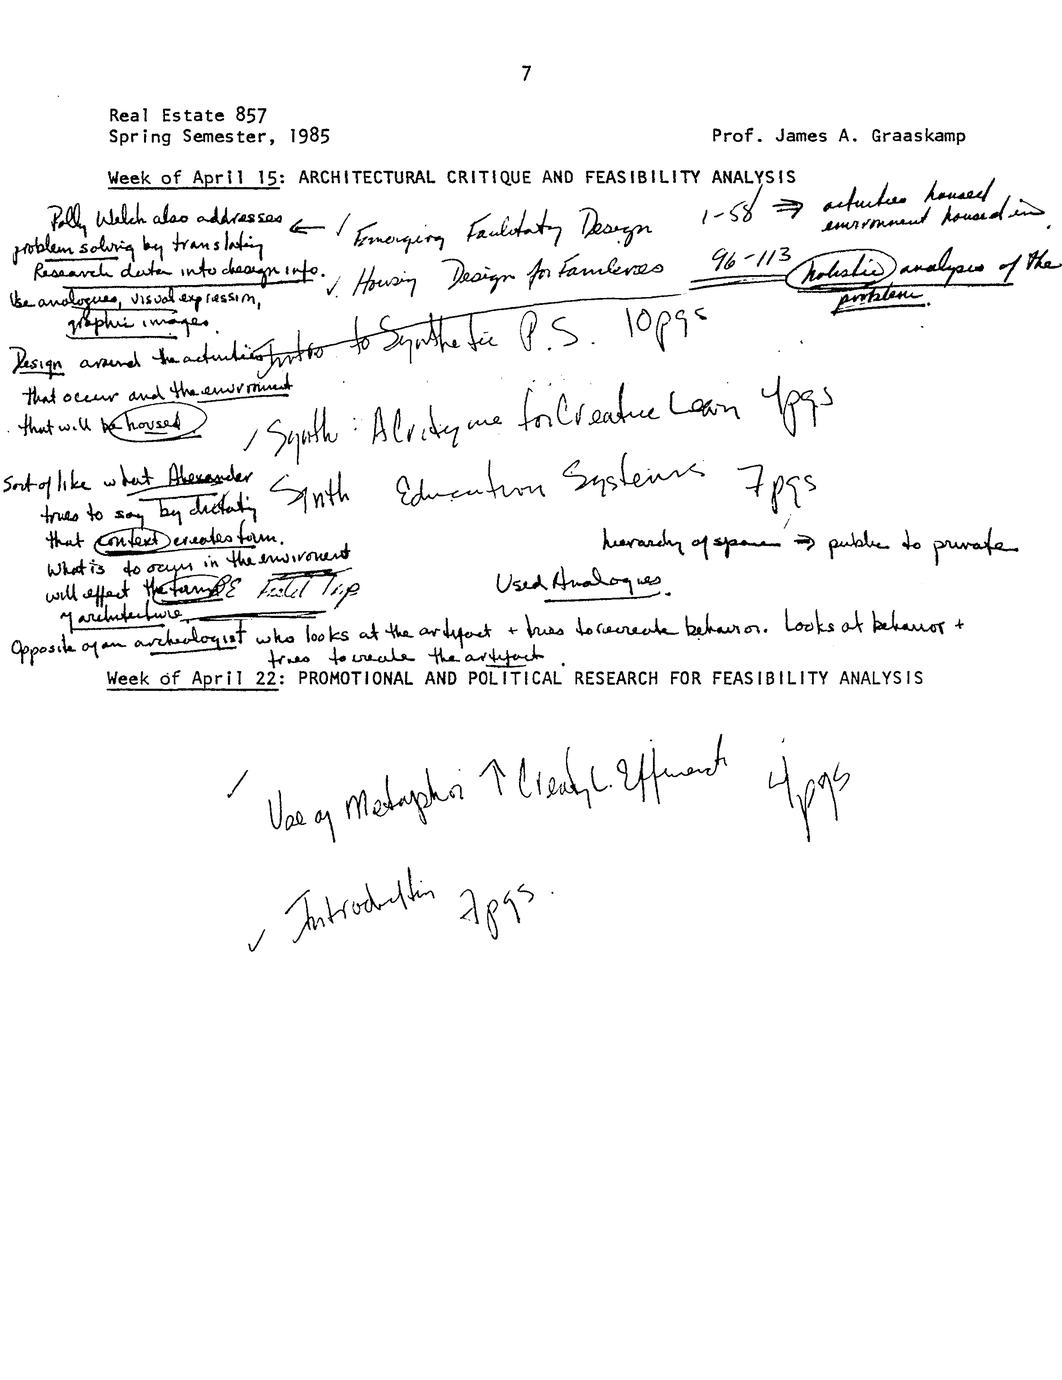 7
Real Estate 857
Spring Semester, 1985
Prof. James A. Graaskamp
Week of April 15: ARCHITECTURAL CRITIQUE AND FEASIBILITY ANALYSIS
Polly Welch also addresses
problem solving by translating
Research data into design info.
Use analogues, visual expression,
graphic images.
← ✓ Emerging Facilitaty Design 1-58 ⇒ activities housed
environment housed in.
✓ Housing Design for Families 96-113 holistic analysis of the
problem.
Intro to Synthetic P.S. 10pgs
Design around the activities
that occur and the environment
that will be housed
✓ Synth: for Creative Learn 4pgs
Sort of like what Alexander
tries to say by dictating
that context creates form.
What is to occur in the environment
will effect the form
of architecture
Synth Education Systems 7pgs
hierarchy of space ⇒ public to private
Used Analogues.
Field Trip
Opposite of an archeologist who looks at the artifact + tries to recreate behavior. Looks at behavior +
tries to create the artifact.
Week of April 22: PROMOTIONAL AND POLITICAL RESEARCH FOR FEASIBILITY ANALYSIS
✓ Use of Metaphor ↑ 4pgs
✓ Introduction 7pgs.